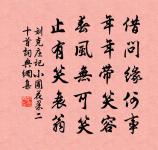 借問緣何事
年年帶笑容
春風無可笑
止有笑衰翁
劉克庄記小圃花果二
十首詞典網喜